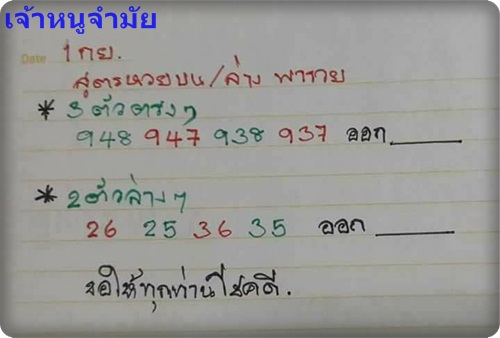 เจ้าหนูจำมัย
Date 1 กย.
สูตรหวยบน/ล่าง พารวย
* 3 ตัวตรงๆ
948 947 938 937 ออก______
* 2 ตัวล่างๆ
26 25 36 35 ออก______
ขอให้ทุกท่านโชคดี.